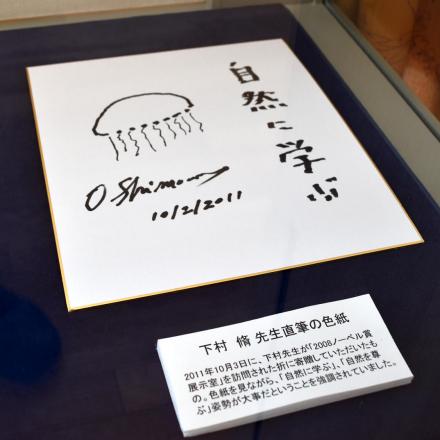 自然に学ぶ
O Shimomura
10/2/2011
下村 脩 先生直筆の色紙
2011年10月3日に、下村先生が「2008ノーベル賞
展示室」を訪問された折に寄贈していただいたも
の。色紙を見ながら、「自然に学ぶ」、「自然を尊
ぶ」姿勢が大事だということを強調されていました。